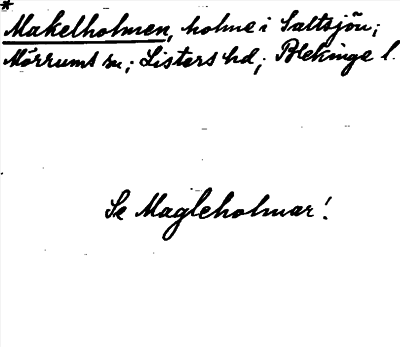 *
Makelholmen, holme i Saltsjön;
Mörrums sn; Listers hd; Blekinge l.
Se Magleholmar!